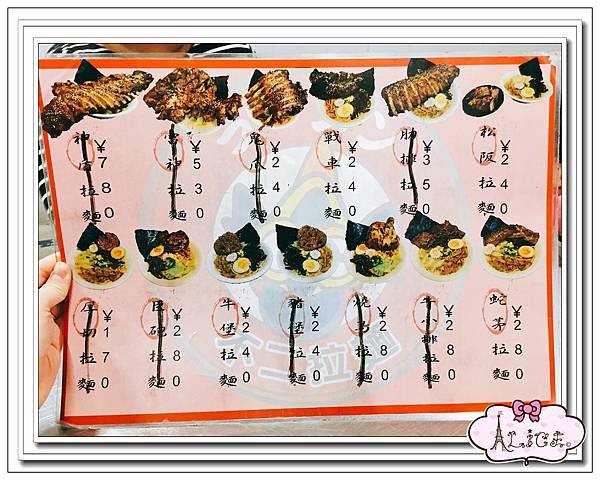 神盾拉麵
¥780
雷神拉麵
¥530
鬼爪拉麵
¥240
戰車拉麵
¥240
肋排拉麵
¥350
松阪拉麵
¥240
厚切拉麵
¥170
巨砲拉麵
¥280
牛堡拉麵
¥240
豬堡拉麵
¥240
燒鳥拉麵
¥280
牛排拉麵
¥280
蛇茅拉麵
¥280
不二拉麵
ALICE.